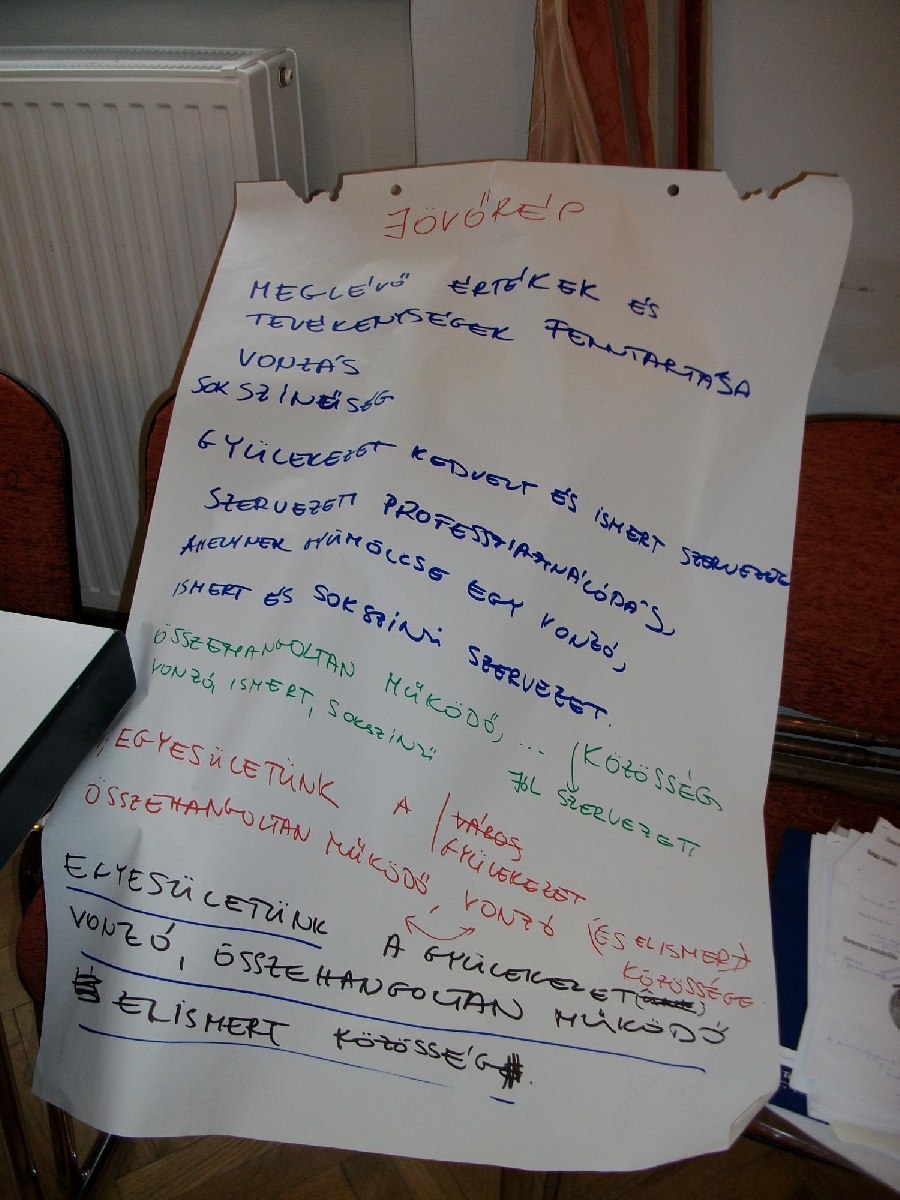 JÖVŐKÉP
MEGLÉVŐ ÉRTÉKEK ÉS
TEVÉKENYSÉGEK FENNTARTÁSA
VONZÁS
SOKSZÍNŰSÉG
GYÜLEKEZET KEDVELT ÉS ISMERT SZERVEZETE
SZERVEZETI PROFESSZIONALÓDÁS,
AMELYNEK GYÜMÖLCSE EGY VONZÓ,
ISMERT ÉS SOKSZÍNŰ SZERVEZET.
ÖSSZEHANGOLTAN MŰKÖDŐ, ... KÖZÖSSÉG,
VONZÓ, ISMERT, SOKSZÍNŰ JÓL SZERVEZETI
EGYESÜLETÜNK A VÁROS
GYÜLEKEZET
ÖSSZEHANGOLTAN MŰKÖDŐ, VONZÓ (ÉS ELISMERT)
KÖZÖSSÉGE
EGYESÜLETÜNK A GYÜLEKEZET
VONZÓ, ÖSSZEHANGOLTAN MŰKÖDŐ
ELISMERT KÖZÖSSÉG